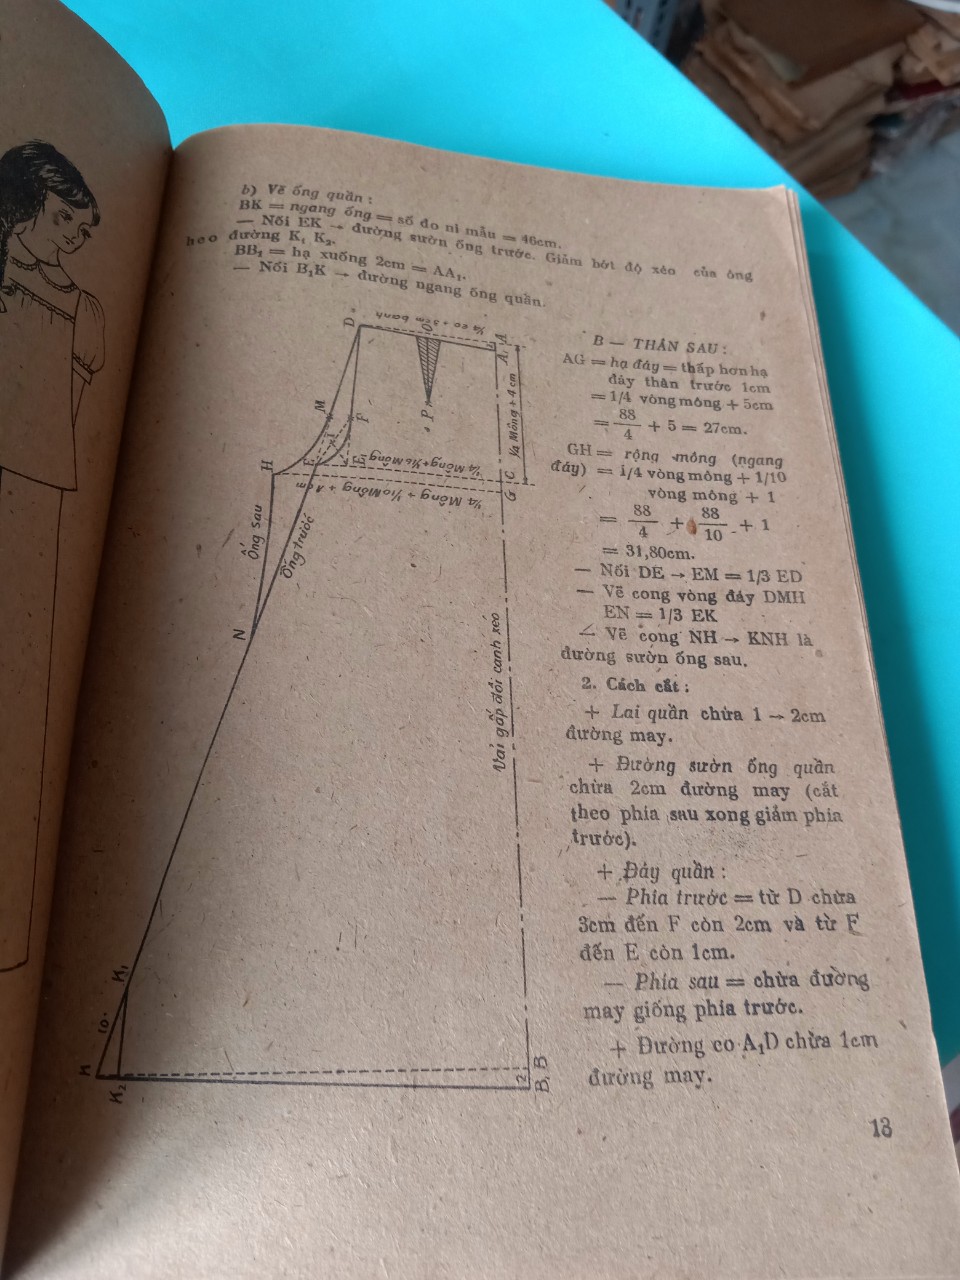 b) Vẽ ống quần :
BK = ngang ống = số đo ni mẫu = 46cm.
— Nối EK → đường sườn ống trước. Giảm bớt độ xéo của ông
heo đường K₁ K₂.
BB₁ = hạ xuống 2cm = AA₁.
— Nối B₁K → đường ngang ống quần.
¼ eo + 3cm banh
D
O
A₁ A
M
F
P
¼ Mông + 4cm
H
E
E₁
¼ Mông + ⅒ Mông
C
¼ Mông + ⅒ Mông + 1cm
G
Ống sau
Ống trước
N
Vải gấp đôi canh xéo
K₁
10
K
K₂
2
B₁ B
B — THÂN SAU :
AG = hạ đáy = thấp hơn hạ
đáy thân trước 1cm
= 1/4 vòng mông + 5cm
= 88/4 + 5 = 27cm.
GH = rộng mông (ngang
đáy) = 1/4 vòng mông + 1/10
vòng mông + 1
= 88/4 + 88/10 + 1
= 31,80cm.
— Nối DE → EM = 1/3 ED
— Vẽ cong vòng đáy DMH
EN = 1/3 EK
— Vẽ cong NH → KNH là
đường sườn ống sau.
2. Cách cắt :
+ Lai quần chừa 1 → 2cm
đường may.
+ Đường sườn ống quần
chừa 2cm đường may (cắt
theo phía sau xong giảm phía
trước).
+ Đáy quần :
— Phía trước = từ D chừa
3cm đến F còn 2cm và từ F
đến E còn 1cm.
— Phía sau = chừa đường
may giống phía trước.
+ Đường eo A₁D chừa 1cm
đường may.
13